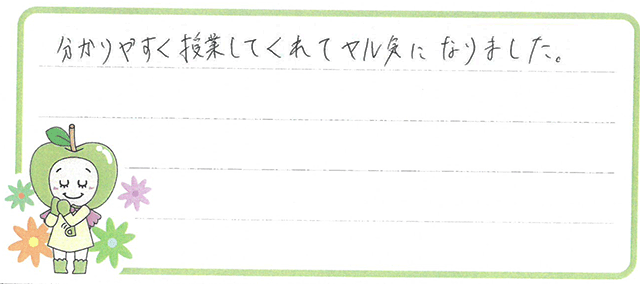 分かりやすく授業してくれてヤル気になりました。